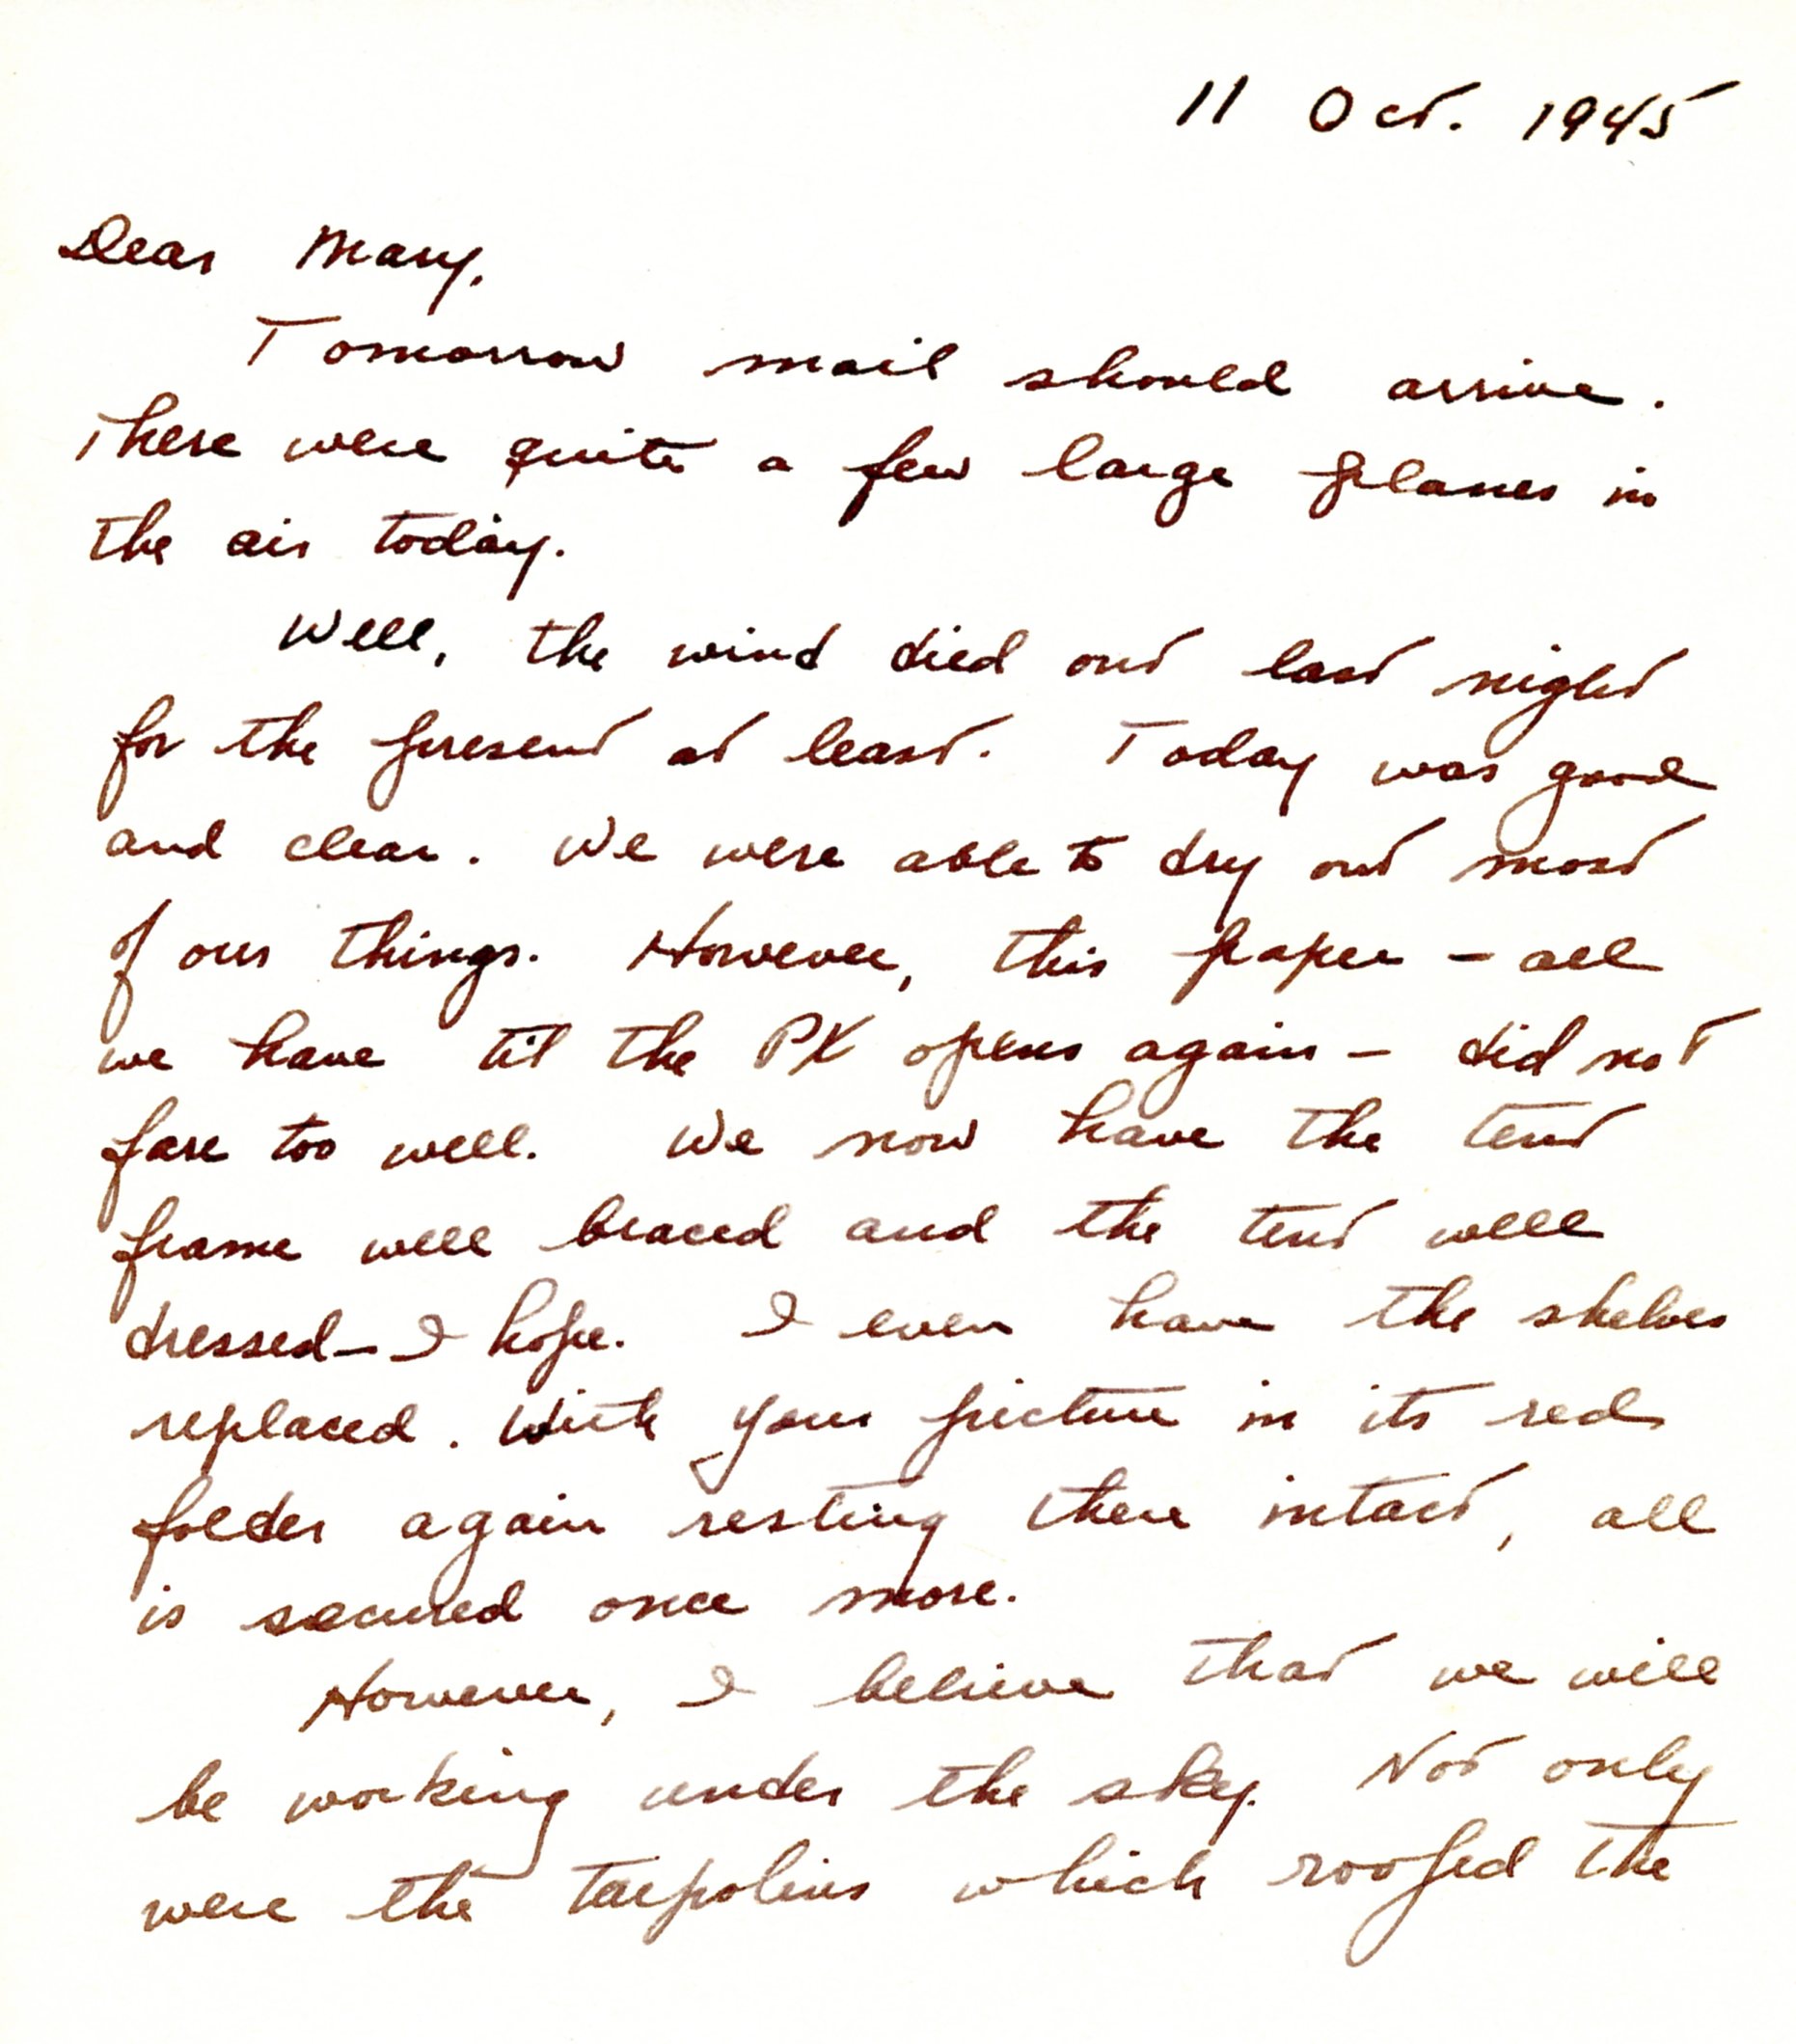 11 Oct. 1945
Dear Mary,
Tomorrow mail should arrive.
There were quite a few large planes in
the air today.
Well, the wind died out last night
for the present at least. Today was good
and clear. We were able to dry out most
of our things. However, this paper - all
we have til the PX opens again - did not
fare too well. We now have the tent
frame well braced and the tent well
dressed - I hope. I even have the shelves
replaced. With your picture in its red
folder again resting there intact, all
is secured once more.
However, I believe that we will
be working under the sky. Not only
were the tarpolins which roofed the